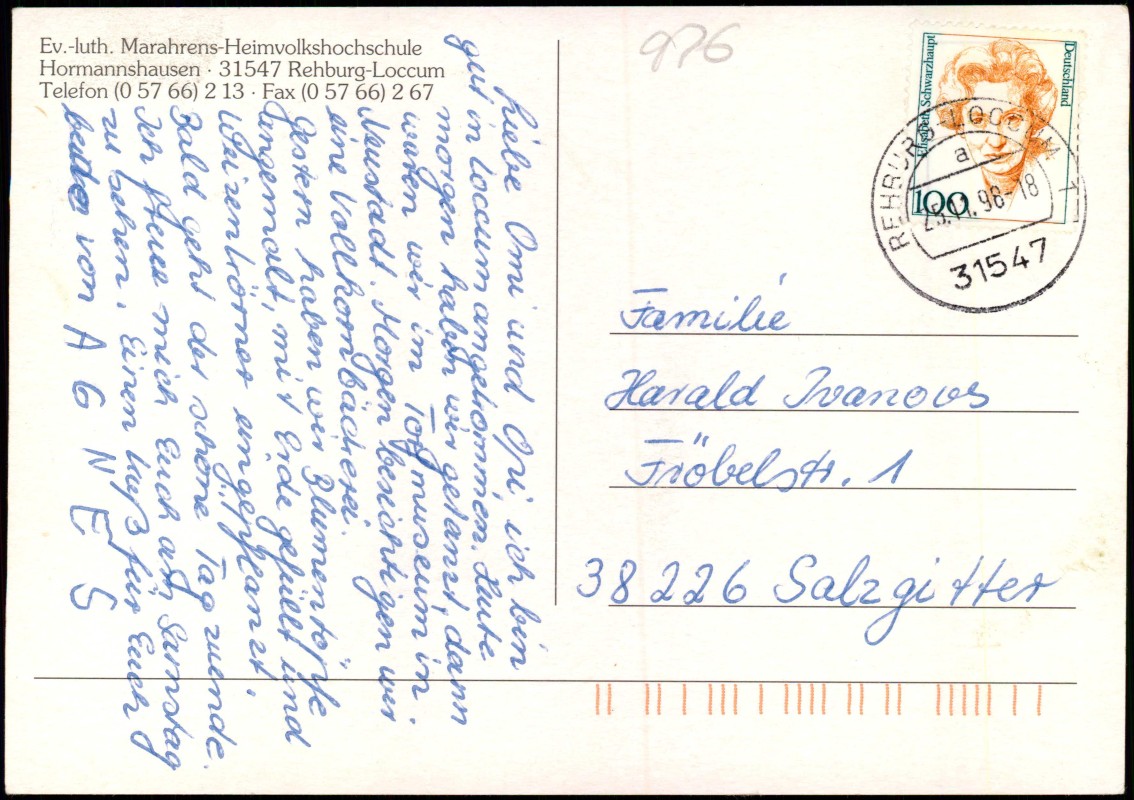 Ev.-luth. Marahrens-Heimvolkshochschule
Hormannshausen · 31547 Rehburg-Loccum
Telefon (0 57 66) 2 13 · Fax (0 57 66) 2 67
Liebe Omi und Opi, ich bin
gut in Loccum angekommen. Heute
morgen haben wir getanzt, dann
waren wir im Torfmuseum in
Neustadt. Morgen besichtigen wir
eine Vollkornbäckerei.
Gestern haben wir Blumentöpfe
angemalt, mit Erde gefüllt und
Weizenkörner eingepflanzt.
Bald geht der schöne Tag zuende.
Ich freue mich Euch am Samstag
zu sehen. Einen Kuß für Euch
beide von AGNES
976
Deutschland
Elisabeth Schwarzhaupt
100
REHBURG-LOCCUM 1
a
25.11.98-18
31547
Familie
Harald Ivanovs
Fröbelstr. 1
38226 Salzgitter